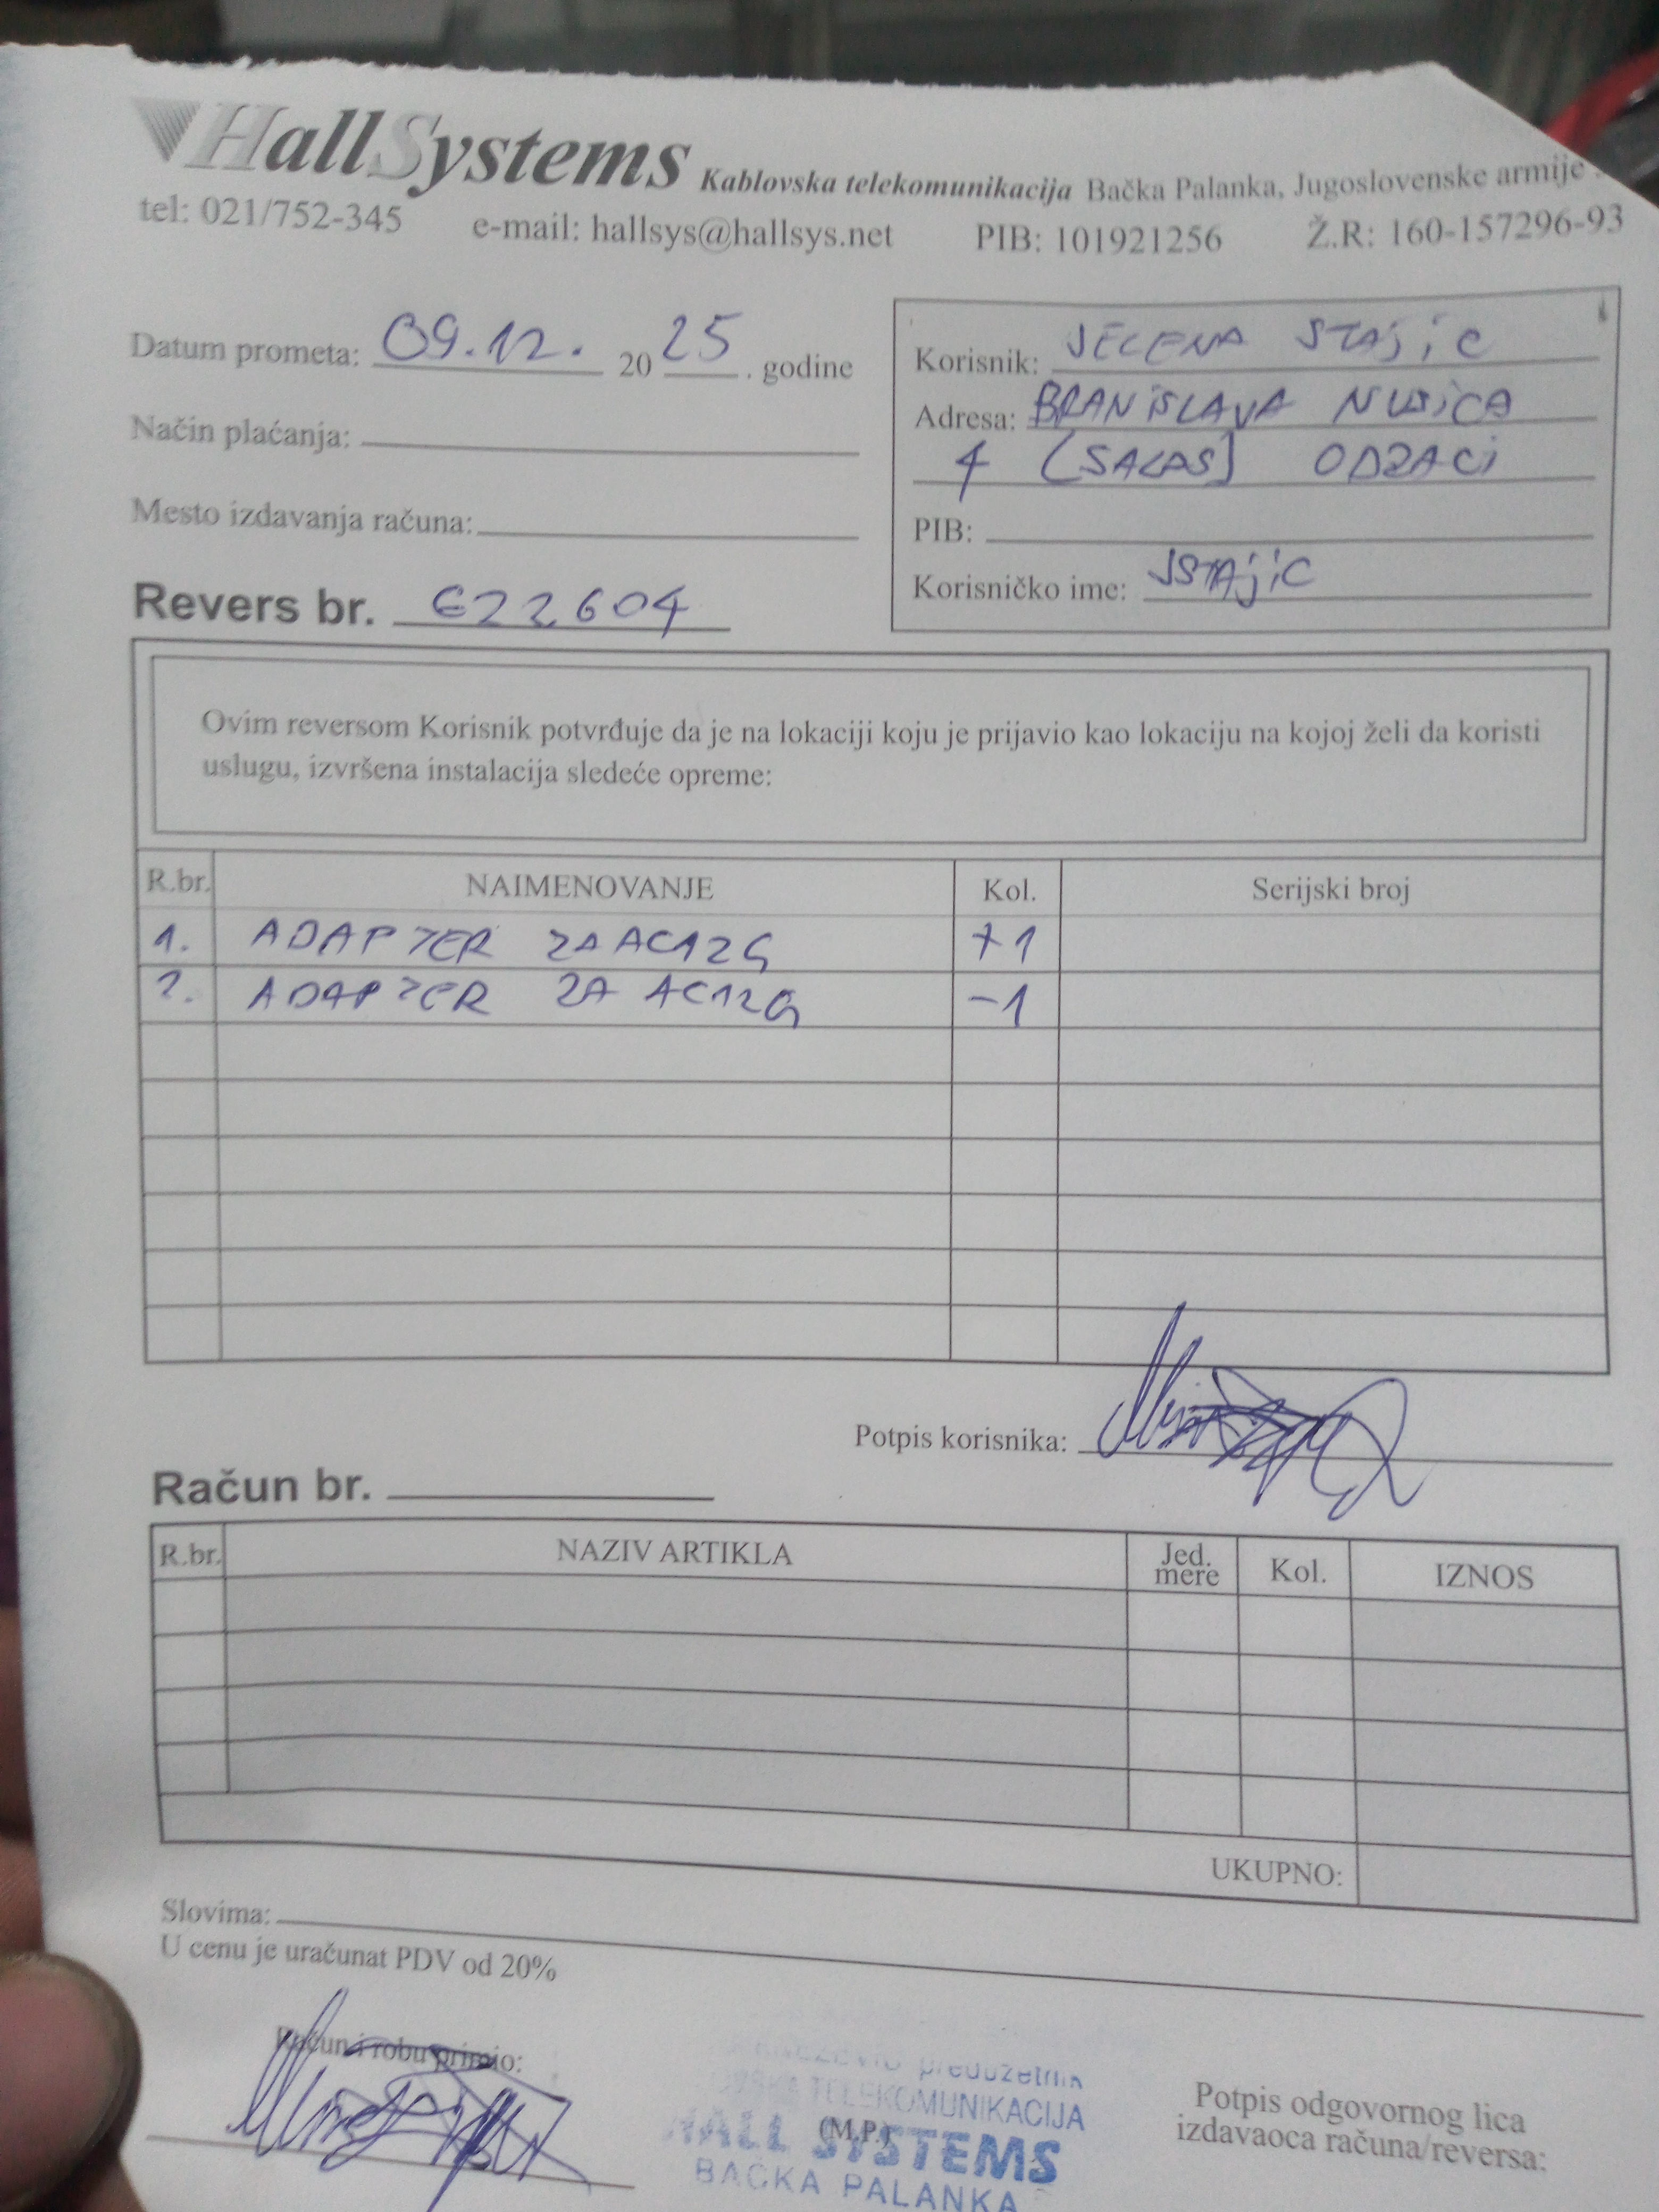 HallSystems Kablovska telekomunikacija Bačka Palanka, Jugoslovenske armije
tel: 021/752-345 e-mail: hallsys@hallsys.net PIB: 101921256 Ž.R: 160-157296-93
Datum prometa: 09.12. 2025. godine
Način plaćanja:
Mesto izdavanja računa:
Korisnik: JELENA STAJIC
Adresa: BRANISLAVA NUSICA
4 (SALAS) ODZACI
PIB:
Korisničko ime: JSTAJIC
Revers br. 622604
Ovim reversom Korisnik potvrđuje da je na lokaciji koju je prijavio kao lokaciju na kojoj želi da koristi
uslugu, izvršena instalacija sledeće opreme:
R.br. NAIMENOVANJE Kol. Serijski broj
1. ADAPTER ZA AC12G +1
2. ADAPTER ZA AC12G -1
Potpis korisnika:
Račun br.
R.br. NAZIV ARTIKLA Jed. mere Kol. IZNOS
UKUPNO:
Slovima:
U cenu je uračunat PDV od 20%
Račun i robu primio:
preduzetnik
TELEKOMUNIKACIJA
(M.P.)
HALL SYSTEMS
BAČKA PALANKA
Potpis odgovornog lica
izdavaoca računa/reversa: